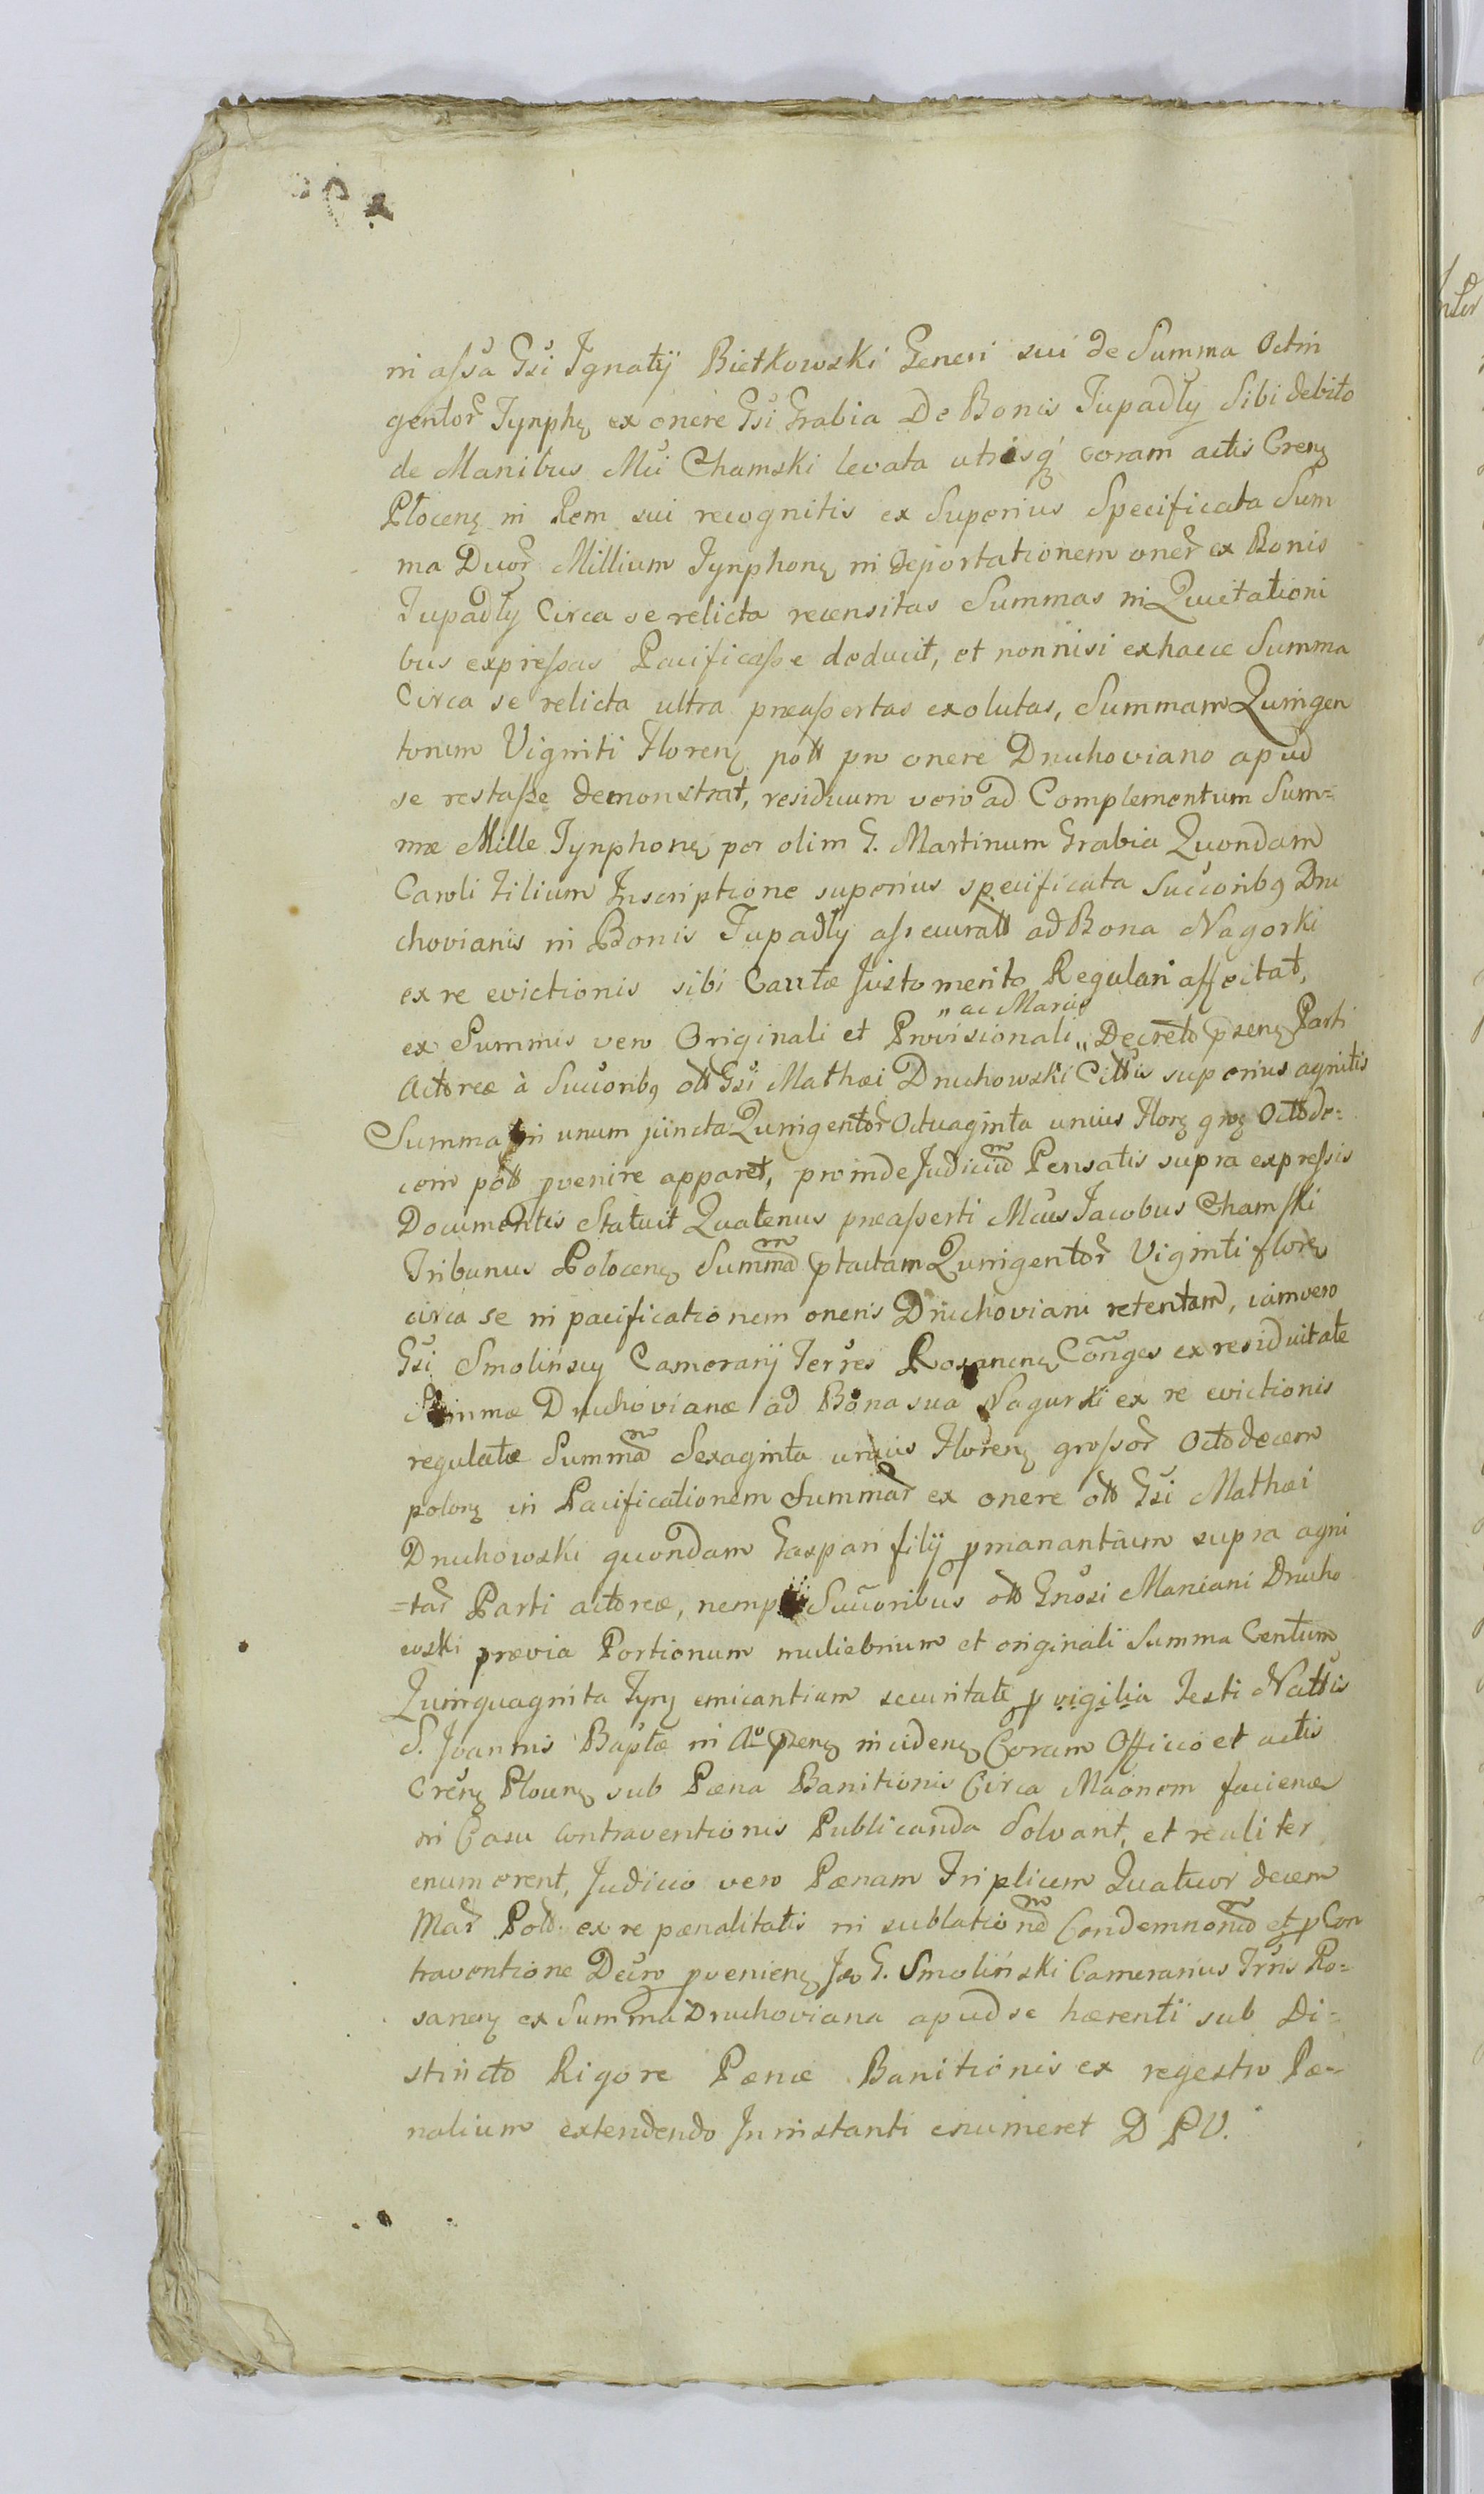 in assa Gsi Ignatij Bietkowski Generi sui de Summa Octin
gentor Tynphz ex onere Gsi Grabia De Bonis Tupadly Sibi debito
de Manibus Mci Chamski levata utrisq coram actis Crenz
Plocenz in Rem sui recognitis ex Superius Specificata Sum
ma Duor Millium Tynphonz in deportationem oner ex Bonis
Tupadly Circa se relicta recensitas Summas in Quietationi
bus expressas Pacificasse deducit, et nonnisi ex hacce Summa
Circa se relicta ultra præassertas exolutas, Summam Quingen
torum Viginti Florenz poll pro onere Druhoviano apud
se restasse demonstrat, residuum vero ad Complementum Sum=
mæ Mille Tynphonz per olim G. Martinum Grabia Quondam
Caroli Filium Inscriptione superius specificata Succoribq Dru
chovianis in Bonis Tupadly assecurall ad Bona Nagorki
ex re evictionis sibi Cautæ Justo merito Regulari affectat,
„ ac Marcis
ex Summis vero Originali et Provisionali „ Decreto pzenz Parti
Actoreæ à Succoribq oll Gsi Mathæi Druhowski Cittis superius agnitis
Summa in unum juncta Quingentor Octuaginta unius Florz groz Octode=
cem poll pvenire apparet, proinde Judicium Pensatis supra expressis
Documentis Statuit Quatenus præasserti Mcus Jacobus Chamski
Tribunus Polocenz Summam ptactam Quingentor Viginti florz
circa se in pacificationem oneris Druchoviani retentam, iamvero
Gsi Smolińscy Camerarij Terres Rozanenz Conges ex residuitate
Summæ Druhovianæ ad Bona sua Nagurki ex re evictionis
regulatæ Summam Sexaginta unius Florenz grossor Octodecem
polonz in Pacificationem Summar ex onere oll Gsi Mathæi
Druhowski quondam Gaspari filij pmanantium supra agni
=tar Parti actoreæ, nempe Succoribus oll Gnosi Marciani Druho
wski prævia Portionum muliebrium et originali Summa Centum
Quinquaginta Tynz emicantium securitate p vigilia Festi Nattis
S. Joannis Baptæ in Ao pzenz incidenz Coram Officio et actis
Crenz Plocenz sub Pæna Banitionis Circa Maonem faciena
in Casu contraventionis Publicanda Solvant, et realiter
enumerent, Judicio vero Pænam Triplicem Quatuor decem
Mar Poll. ex re pænalitatis in sublationem Condemnonem et p Con
traventione Decro pvenienz Idem G. Smoliński Camerarius Trris Ro=
sanenz ex Summa Druhoviana apud se hærenti sub Di=
stincto Rigore Pænæ Banitionis ex regestro Pæ=
nalium extendendo In instanti enumeret D P V.